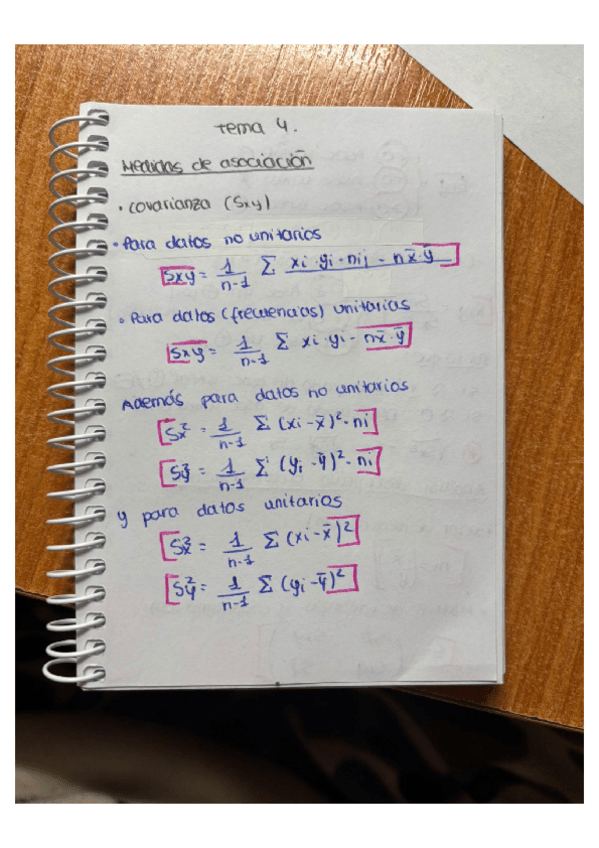 Tema 4.
Medidas de asociación
• Covarianza (Sxy)
• Para datos no unitarios
Sxy = 1/n-1 Σ xi · yi · nij - n x̄ · ȳ
• Para datos (frecuencias) unitarias
Sxy = 1/n-1 Σ xi · yi - n x̄ · ȳ
Además para datos no unitarios
Sx² = 1/n-1 Σ (xi - x̄)² · ni
Sy² = 1/n-1 Σ (yi - ȳ)² · ni
y para datos unitarios
Sx² = 1/n-1 Σ (xi - x̄)²
Sy² = 1/n-1 Σ (yi - ȳ)²